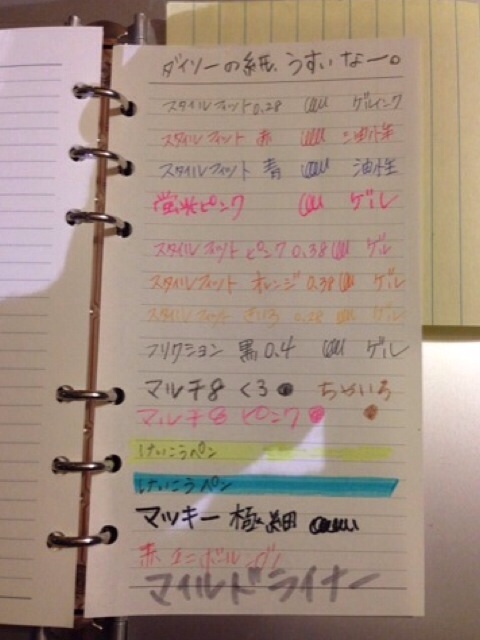 ダイソーの紙、うすいなー。
スタイルフィット0.28 ゲルインク
スタイルフィット 赤 油性
スタイルフィット 青 油性
蛍光ピンク ゲル
スタイルフィット ピンク 0.38 ゲル
スタイルフィット オレンジ 0.38 ゲル
スタイルフィット きいろ 0.28 ゲル
フリクション 黒 0.4 ゲル
マルチ8 くろ ちゃいろ
マルチ8 ピンク
けいこうペン
けいこうペン
マッキー 極細
赤
マイルドライナー